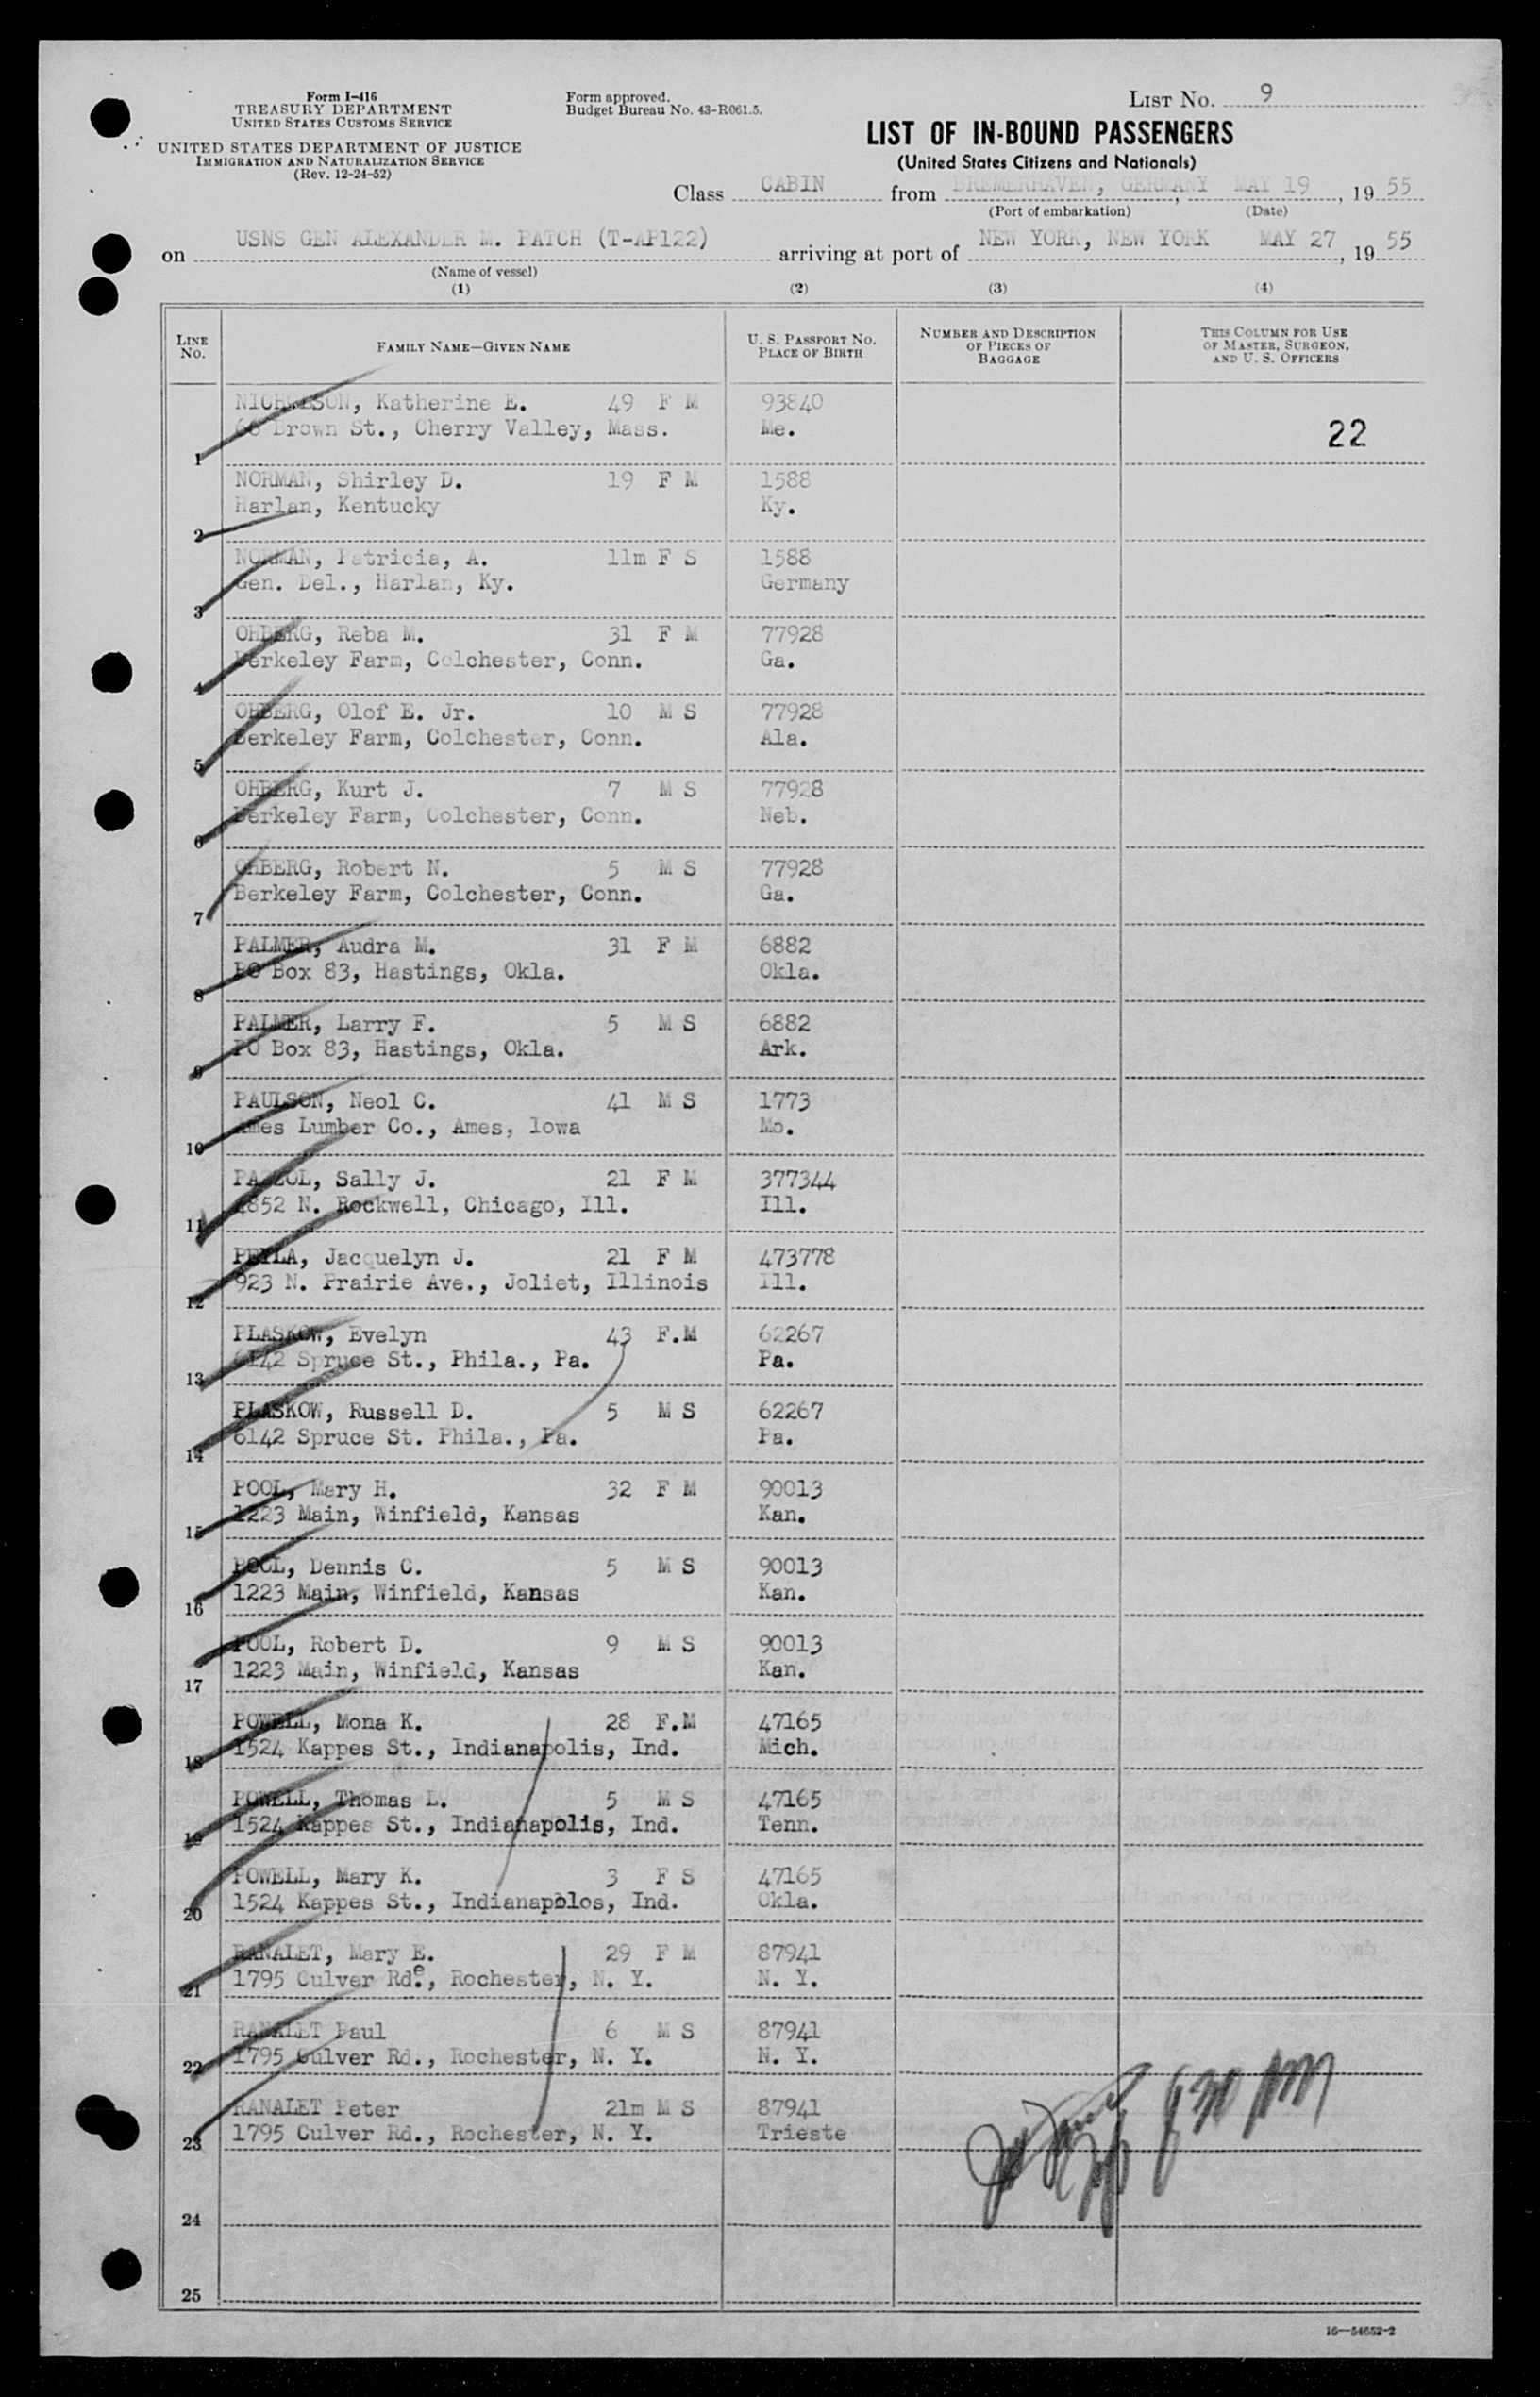 Form I-416
TREASURY DEPARTMENT
UNITED STATES CUSTOMS SERVICE
UNITED STATES DEPARTMENT OF JUSTICE
IMMIGRATION AND NATURALIZATION SERVICE
(Rev. 12-24-52)
Form approved.
Budget Bureau No. 43-R061.5.
LIST NO. 9
LIST OF IN-BOUND PASSENGERS
(United States Citizens and Nationals)
Class CABIN from BREMERHAVEN, GERMANY, MAY 19, 19 55
(Port of embarkation) (Date)
on USNS GEN ALEXANDER M. PATCH (T-AP122) arriving at port of NEW YORK, NEW YORK MAY 27, 19 55
(Name of vessel)
(1) (2) (3) (4)
LINE NO. FAMILY NAME—GIVEN NAME U. S. PASSPORT NO. PLACE OF BIRTH NUMBER AND DESCRIPTION OF PIECES OF BAGGAGE THIS COLUMN FOR USE OF MASTER, SURGEON, AND U. S. OFFICERS
Katherine E. 49 F M 93840
Brown St., Cherry Valley, Mass. Me. 22
1
NORMAN, Shirley D. 19 F M 1588
Harlan, Kentucky Ky.
2
NORMAN, Patricia, A. 11m F S 1588
Gen. Del., Harlan, Ky. Germany
3
OHBERG, Reba M. 31 F M 77928
Berkeley Farm, Colchester, Conn. Ga.
4
OHBERG, Olof E. Jr. 10 M S 77928
Berkeley Farm, Colchester, Conn. Ala.
5
OHBERG, Kurt J. 7 M S 77928
Berkeley Farm, Colchester, Conn. Neb.
6
OHBERG, Robert N. 5 M S 77928
Berkeley Farm, Colchester, Conn. Ga.
7
PALMER, Audra M. 31 F M 6882
PO Box 83, Hastings, Okla. Okla.
8
PALMER, Larry F. 5 M S 6882
PO Box 83, Hastings, Okla. Ark.
9
PAULSON, Neol C. 41 M S 1773
Ames Lumber Co., Ames, Iowa Mo.
10
Sally J. 21 F M 377344
4852 N. Rockwell, Chicago, Ill. Ill.
11
Jacquelyn J. 21 F M 473778
923 N. Prairie Ave., Joliet, Illinois Ill.
12
PLASKOW, Evelyn 43 F.M 62267
6142 Spruce St., Phila., Pa. Pa.
13
PLASKOW, Russell D. 5 M S 62267
6142 Spruce St. Phila., Pa. Pa.
14
POOL, Mary H. 32 F M 90013
1223 Main, Winfield, Kansas Kan.
15
POOL, Dennis C. 5 M S 90013
1223 Main, Winfield, Kansas Kan.
16
POOL, Robert D. 9 M S 90013
1223 Main, Winfield, Kansas Kan.
17
POWELL, Mona K. 28 F.M 47165
1524 Kappes St., Indianapolis, Ind. Mich.
18
POWELL, Thomas L. 5 M S 47165
1524 Kappes St., Indianapolis, Ind. Tenn.
19
POWELL, Mary K. 3 F S 47165
1524 Kappes St., Indianapolos, Ind. Okla.
20
RANALET, Mary E. 29 F M 87941
1795 Culver Rd., Rochester, N. Y. N. Y.
21
RANALET Paul 6 M S 87941
1795 Culver Rd., Rochester, N. Y. N. Y.
22
RANALET Peter 21m M S 87941
1795 Culver Rd., Rochester, N. Y. Trieste
23
24
25
16—54652-2